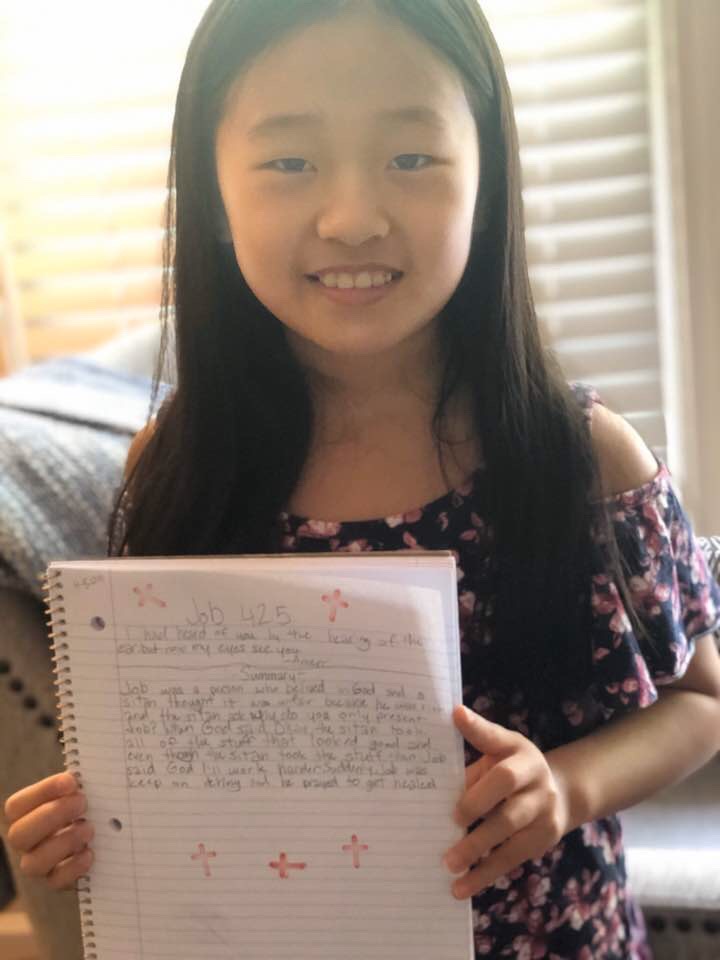 Job 42:5
I had heard of you by the hearing of the
ear but now my eyes see you
-Amen
Summary-
Job was a person who belived in God and a
sitan thought it was unfair because he was
and the sitan ask why do you only present
Job? When God said the sitan took
all of the stuff that looked good and
even though the sitan took the stuff than Job
said God I'll work harder. Suddenly Job was
keep on and he prayed to get healed